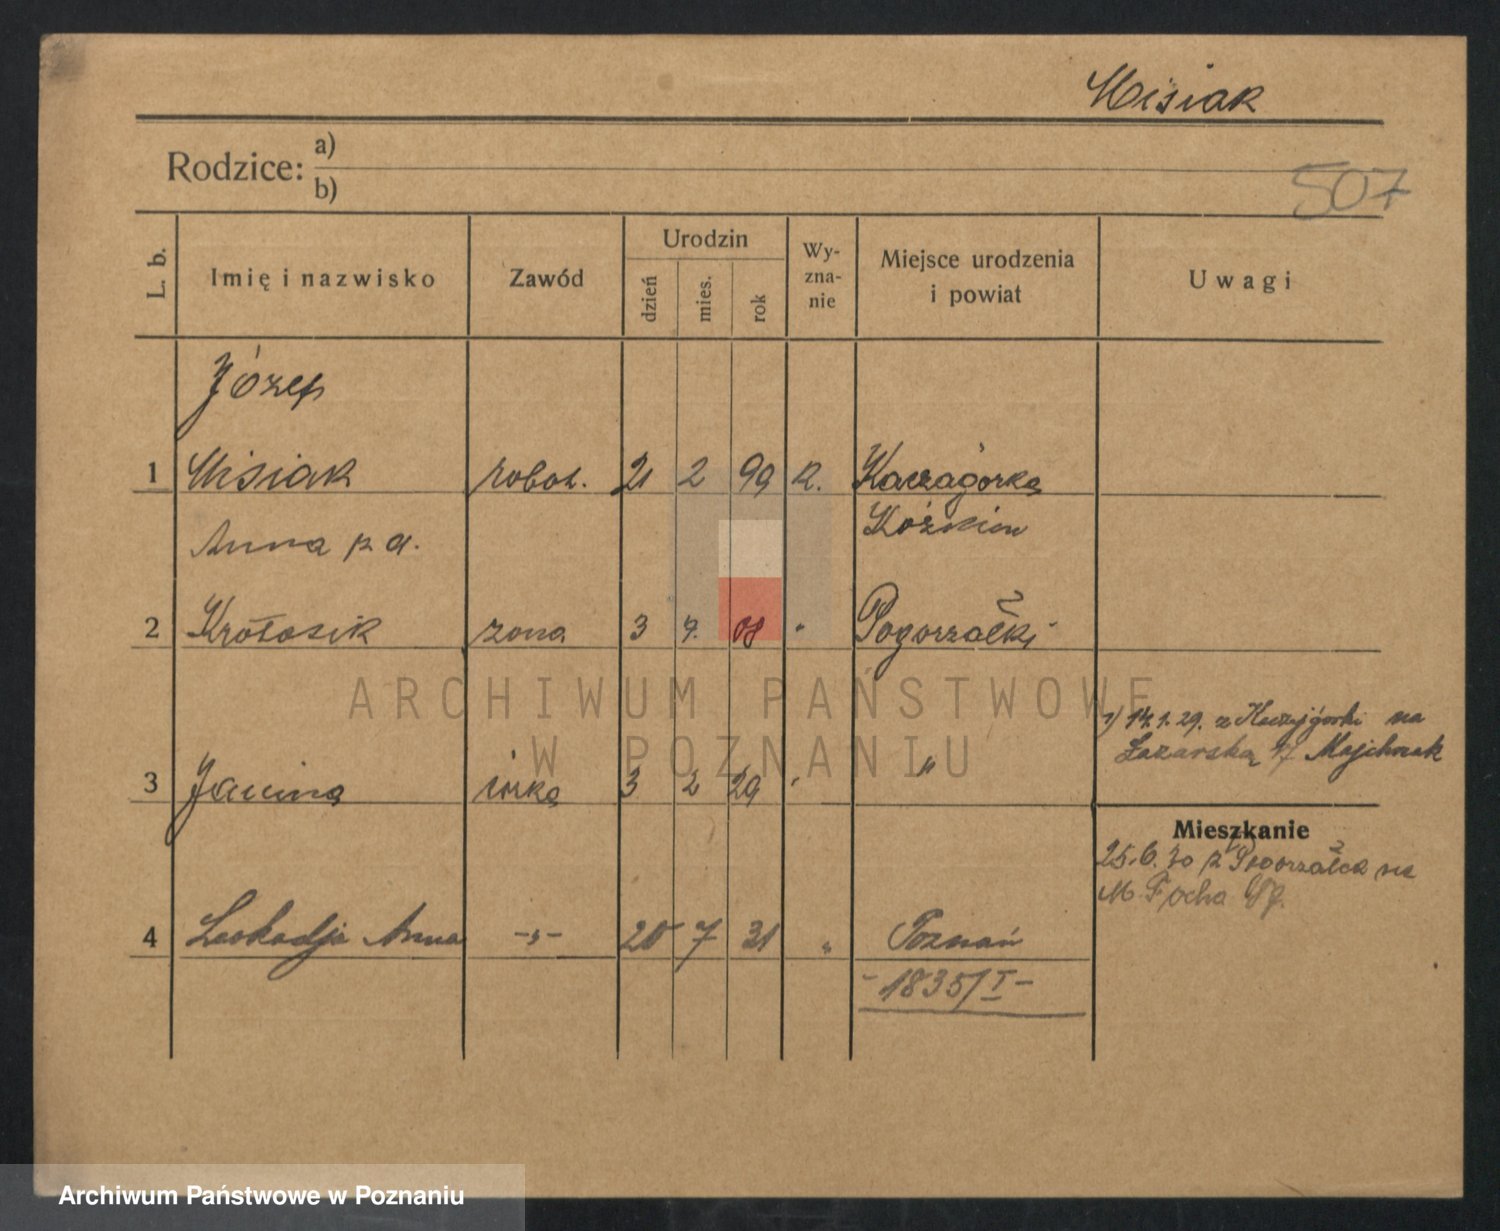 Misiak
Rodzice: a)
b)
507
L. b.
Imię i nazwisko
Zawód
Urodzin
dzień
mies.
rok
Wy-
zna-
nie
Miejsce urodzenia
i powiat
Uwagi
Józef
1 Misiak robot. 21 2 99 R. Kaczagórka
Anna z d. Koźmin
2 Krotosik żona 3 7. 08 " Pogorzałki
1) 14.1.29. z Kaczejgórki na
Łazarska 17 Majchrzak
3 Janina córka 3 2 29 " "
Mieszkanie
25.6.30 z Pogorzałek na
M. Focha
4 Leokadja Anna -„- 20 7 31 „ Poznań
- 1835/I -
ARCHIWUM PAŃSTWOWE
W POZNANIU
Archiwum Państwowe w Poznaniu